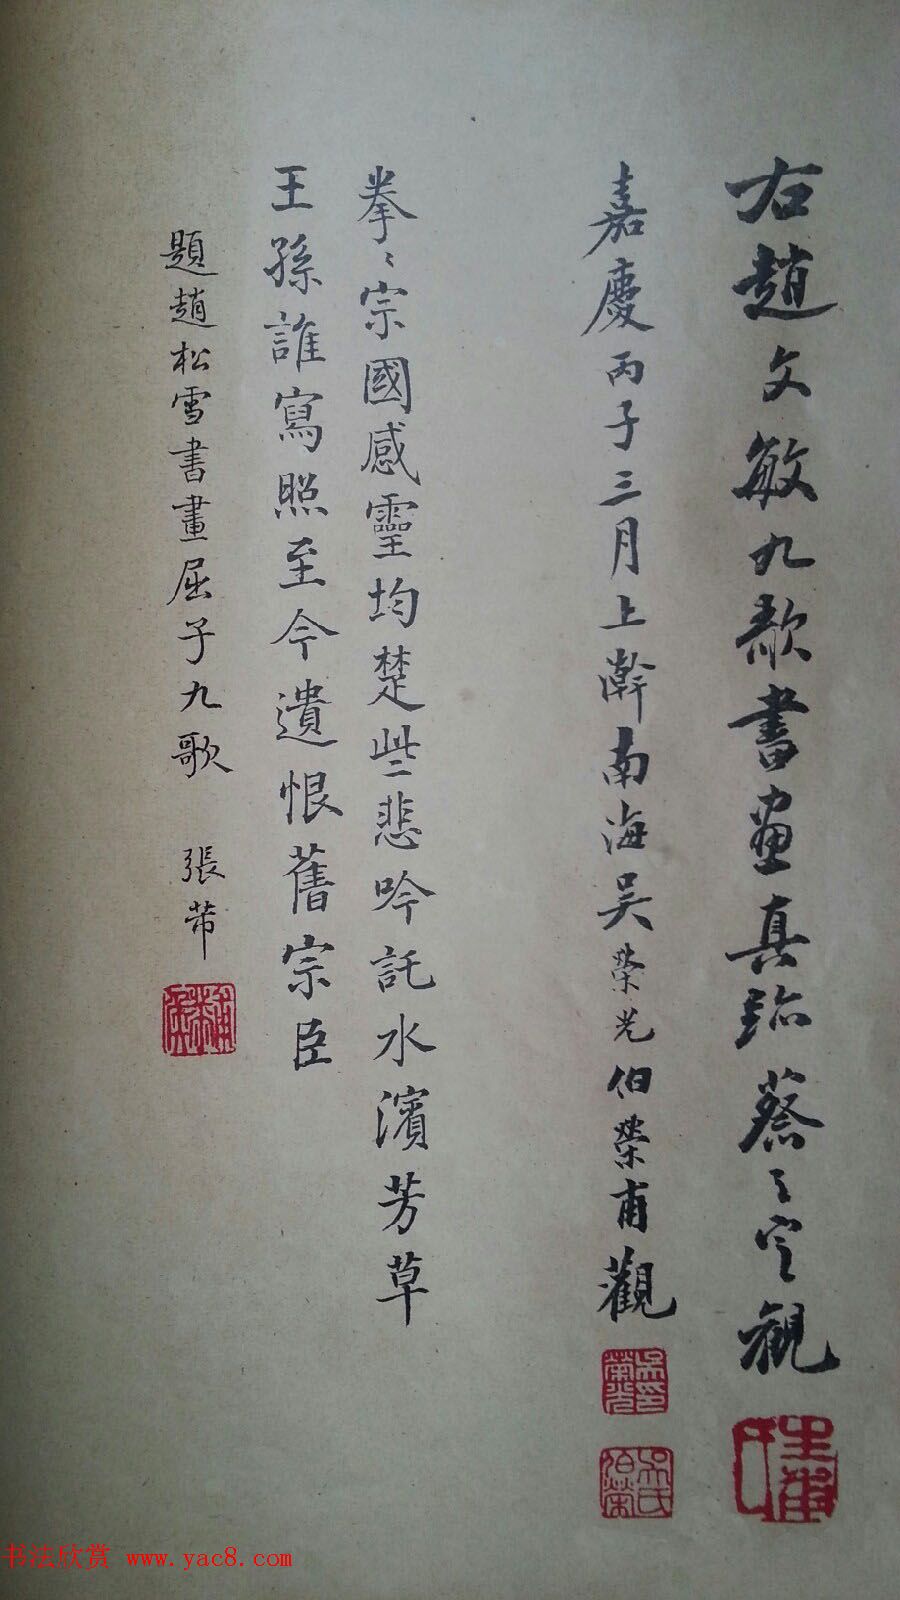 右趙文敏九歌書畫真跡蔡之定觀
嘉慶丙子三月上澣南海吳榮光伯榮甫觀
吳榮光印
吳氏伯榮
拳〻宗國感靈均楚些悲吟託水濱芳草
王孫誰寫照至今遺恨舊宗臣
題趙松雪書畫屈子九歌 張芾
书法欣赏 www.yac8.com